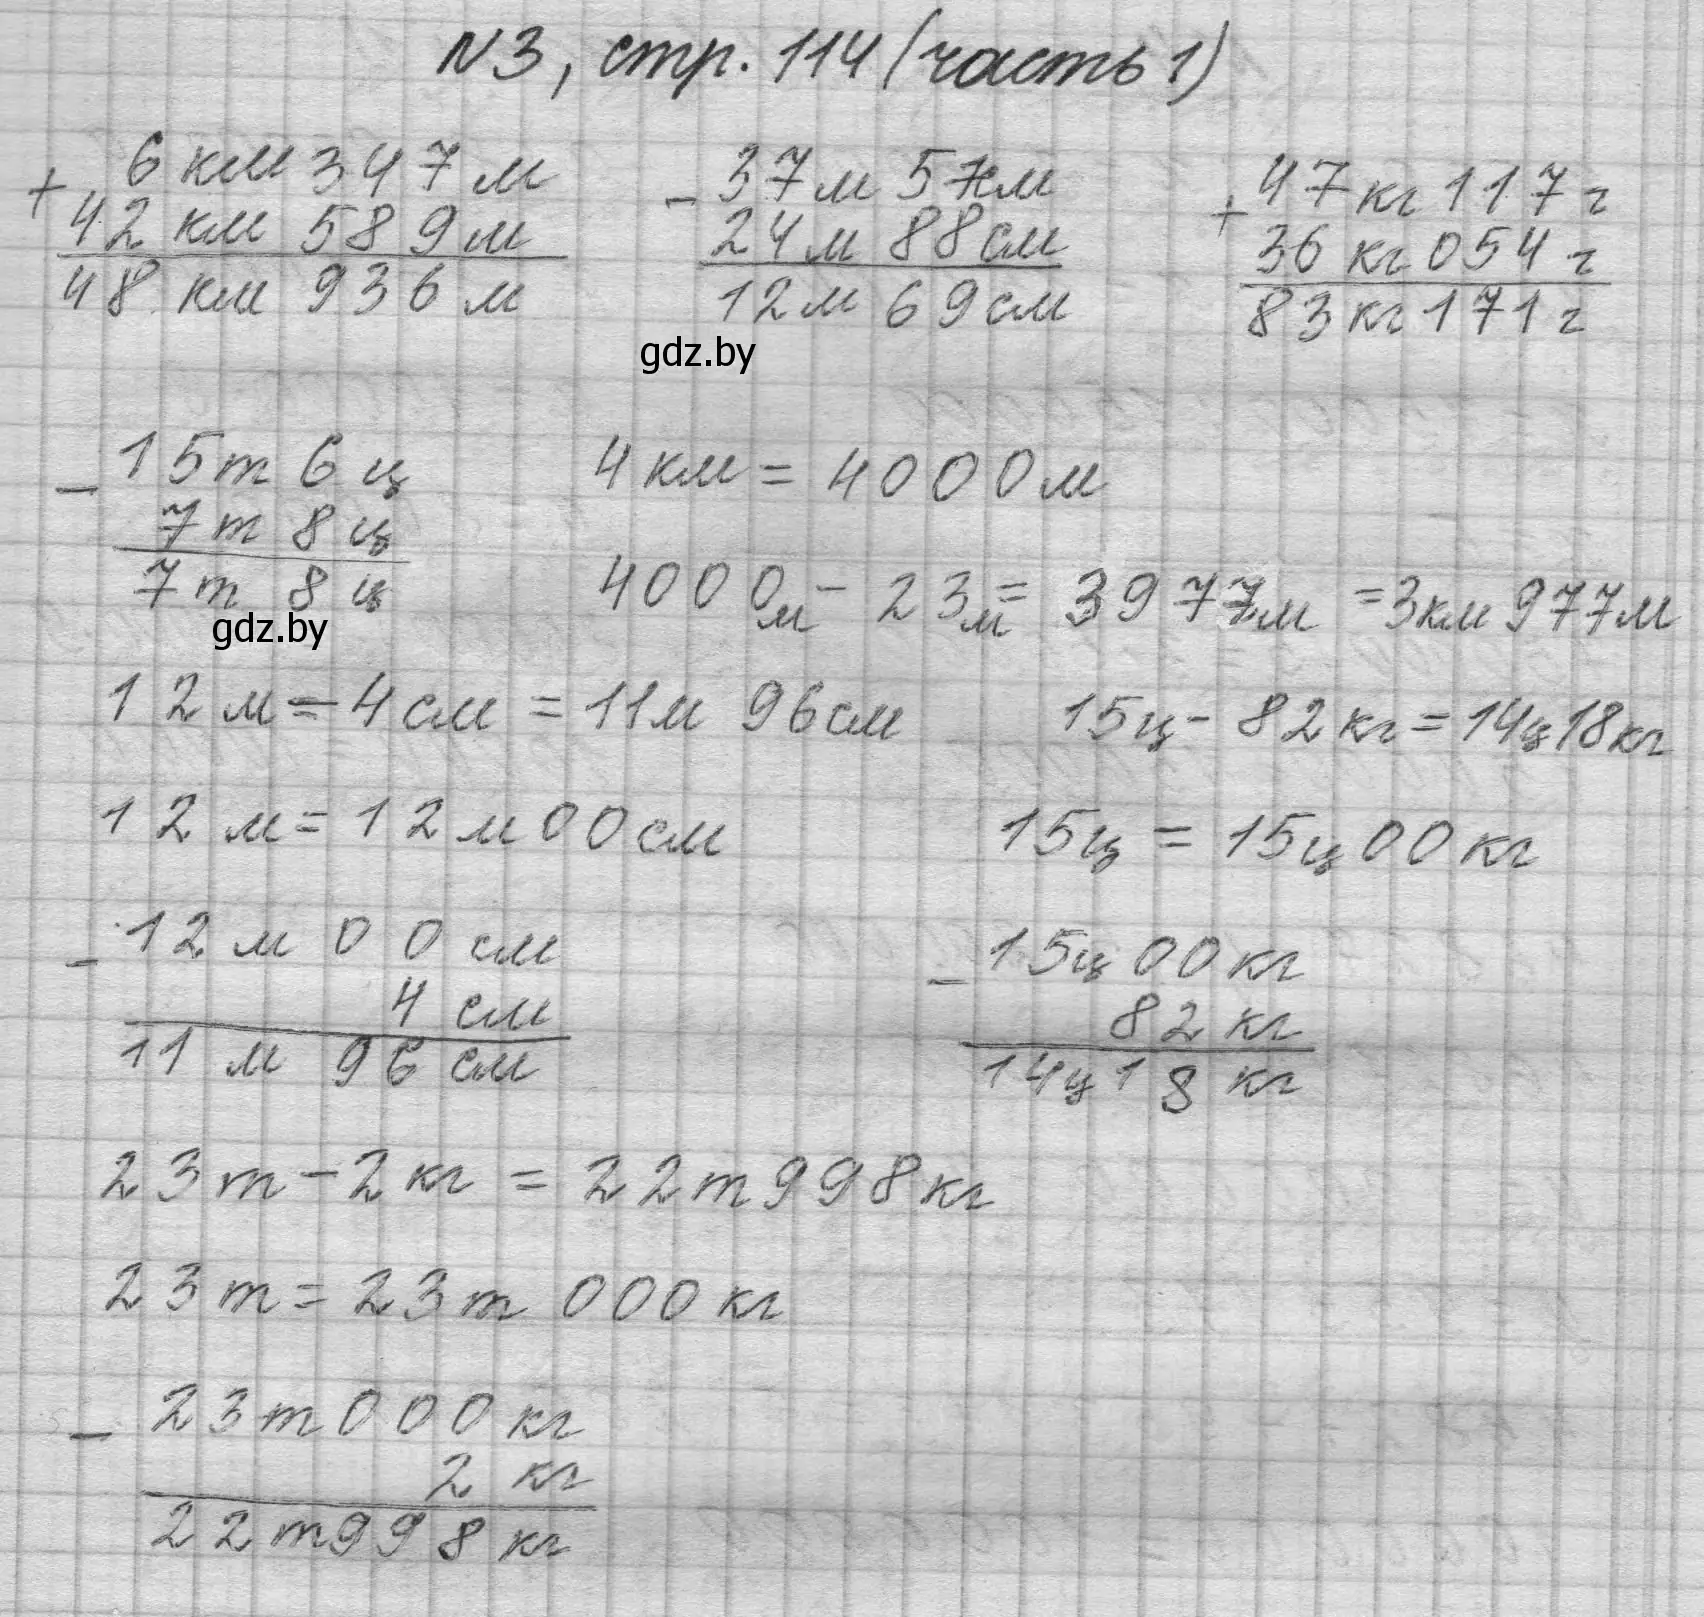 N3, стр. 114 (часть 1)
+ 6 км 347 м
42 км 589 м
48 км 936 м
- 37 м 57 см
24 м 88 см
12 м 69 см
+ 47 кг 117 г
36 кг 054 г
83 кг 171 г
gdz.by
- 15 т 6 ц
7 т 8 ц
7 т 8 ц
gdz.by
4 км = 4000 м
4000 м - 23 м = 3977 м = 3 км 977 м
12 м - 4 см = 11 м 96 см
15 ц - 82 кг = 14 ц 18 кг
12 м = 12 м 00 см
15 ц = 15 ц 00 кг
- 12 м 00 см
4 см
11 м 96 см
- 15 ц 00 кг
82 кг
14 ц 18 кг
23 т - 2 кг = 22 т 998 кг
23 т = 23 т 000 кг
- 23 т 000 кг
2 кг
22 т 998 кг